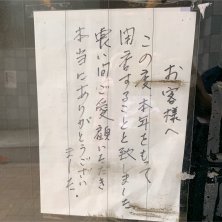 お客様へ
この度本年をもて
閉店することと致しました
長い間ご愛顧いただき
本当にありがとうござい
ました.